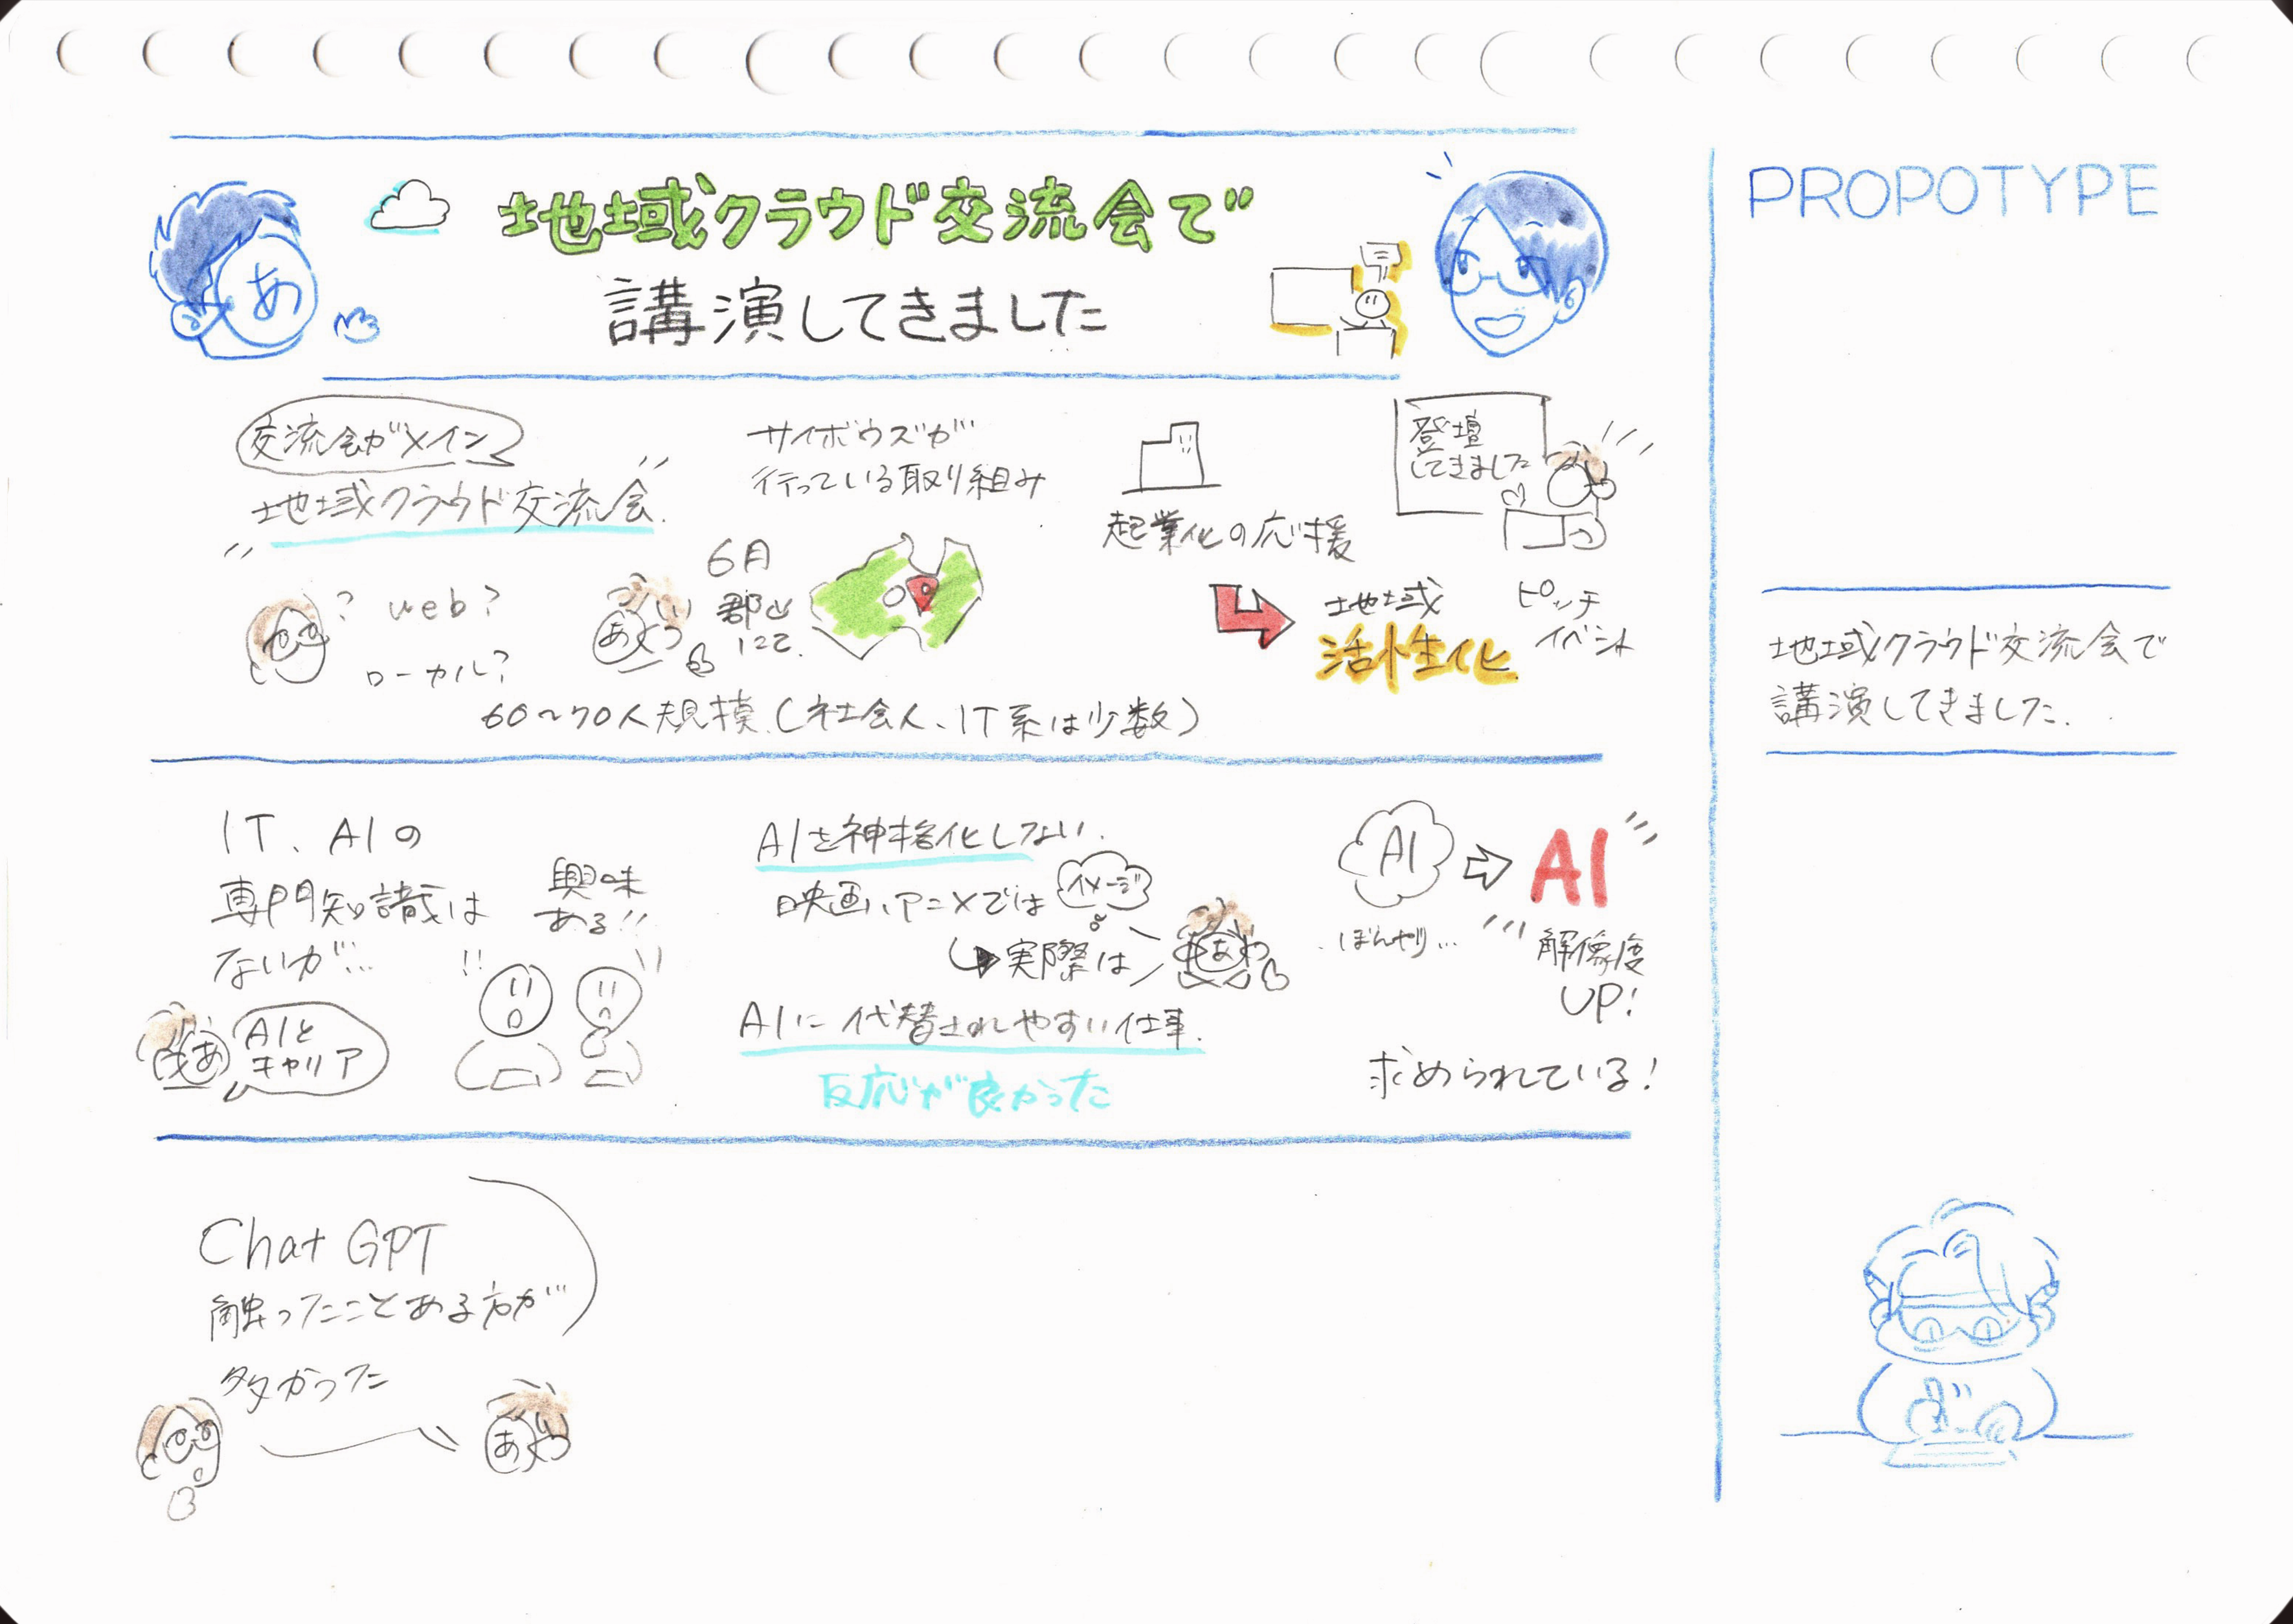 地域クラウド交流会で
講演してきました
あ
PROPOTYPE
地域クラウド交流会で
講演してきました.
交流会がメイン
地域クラウド交流会.
? web?
ローカル?
サイボウズが
行っている取り組み
6月
郡山
にて.
あ
60~70人規模.(社会人、IT系は少数)
起業化の応援
地域
活性化
登壇
してきました
ピッチ
イベント
IT、AIの
専門知識は
ないが…
興味
ある!!
!!
あ
AIと
キャリア
AIを神格化しない.
映画、アニメでは
イメージ
実際は
あ
AIに代替されやすい仕事.
反応が良かった
AI
AI
ぼんやり…
解像度
UP!
求められている!
Chat GPT
触ったことある方が
多かった
あ